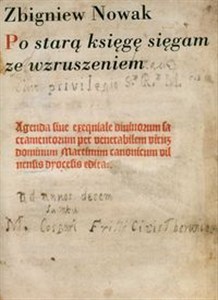 Zbigniew Nowak
Po starą księgę sięgam
ze wzruszeniem
cum privilegio S. R. M.
Agenda siue exequiale diuinorum sa
cramentorum per venerabilem virum
dominum Martinum canonicum vil
nensis dyocesis edita.
Ad annos decem
M. Caspari